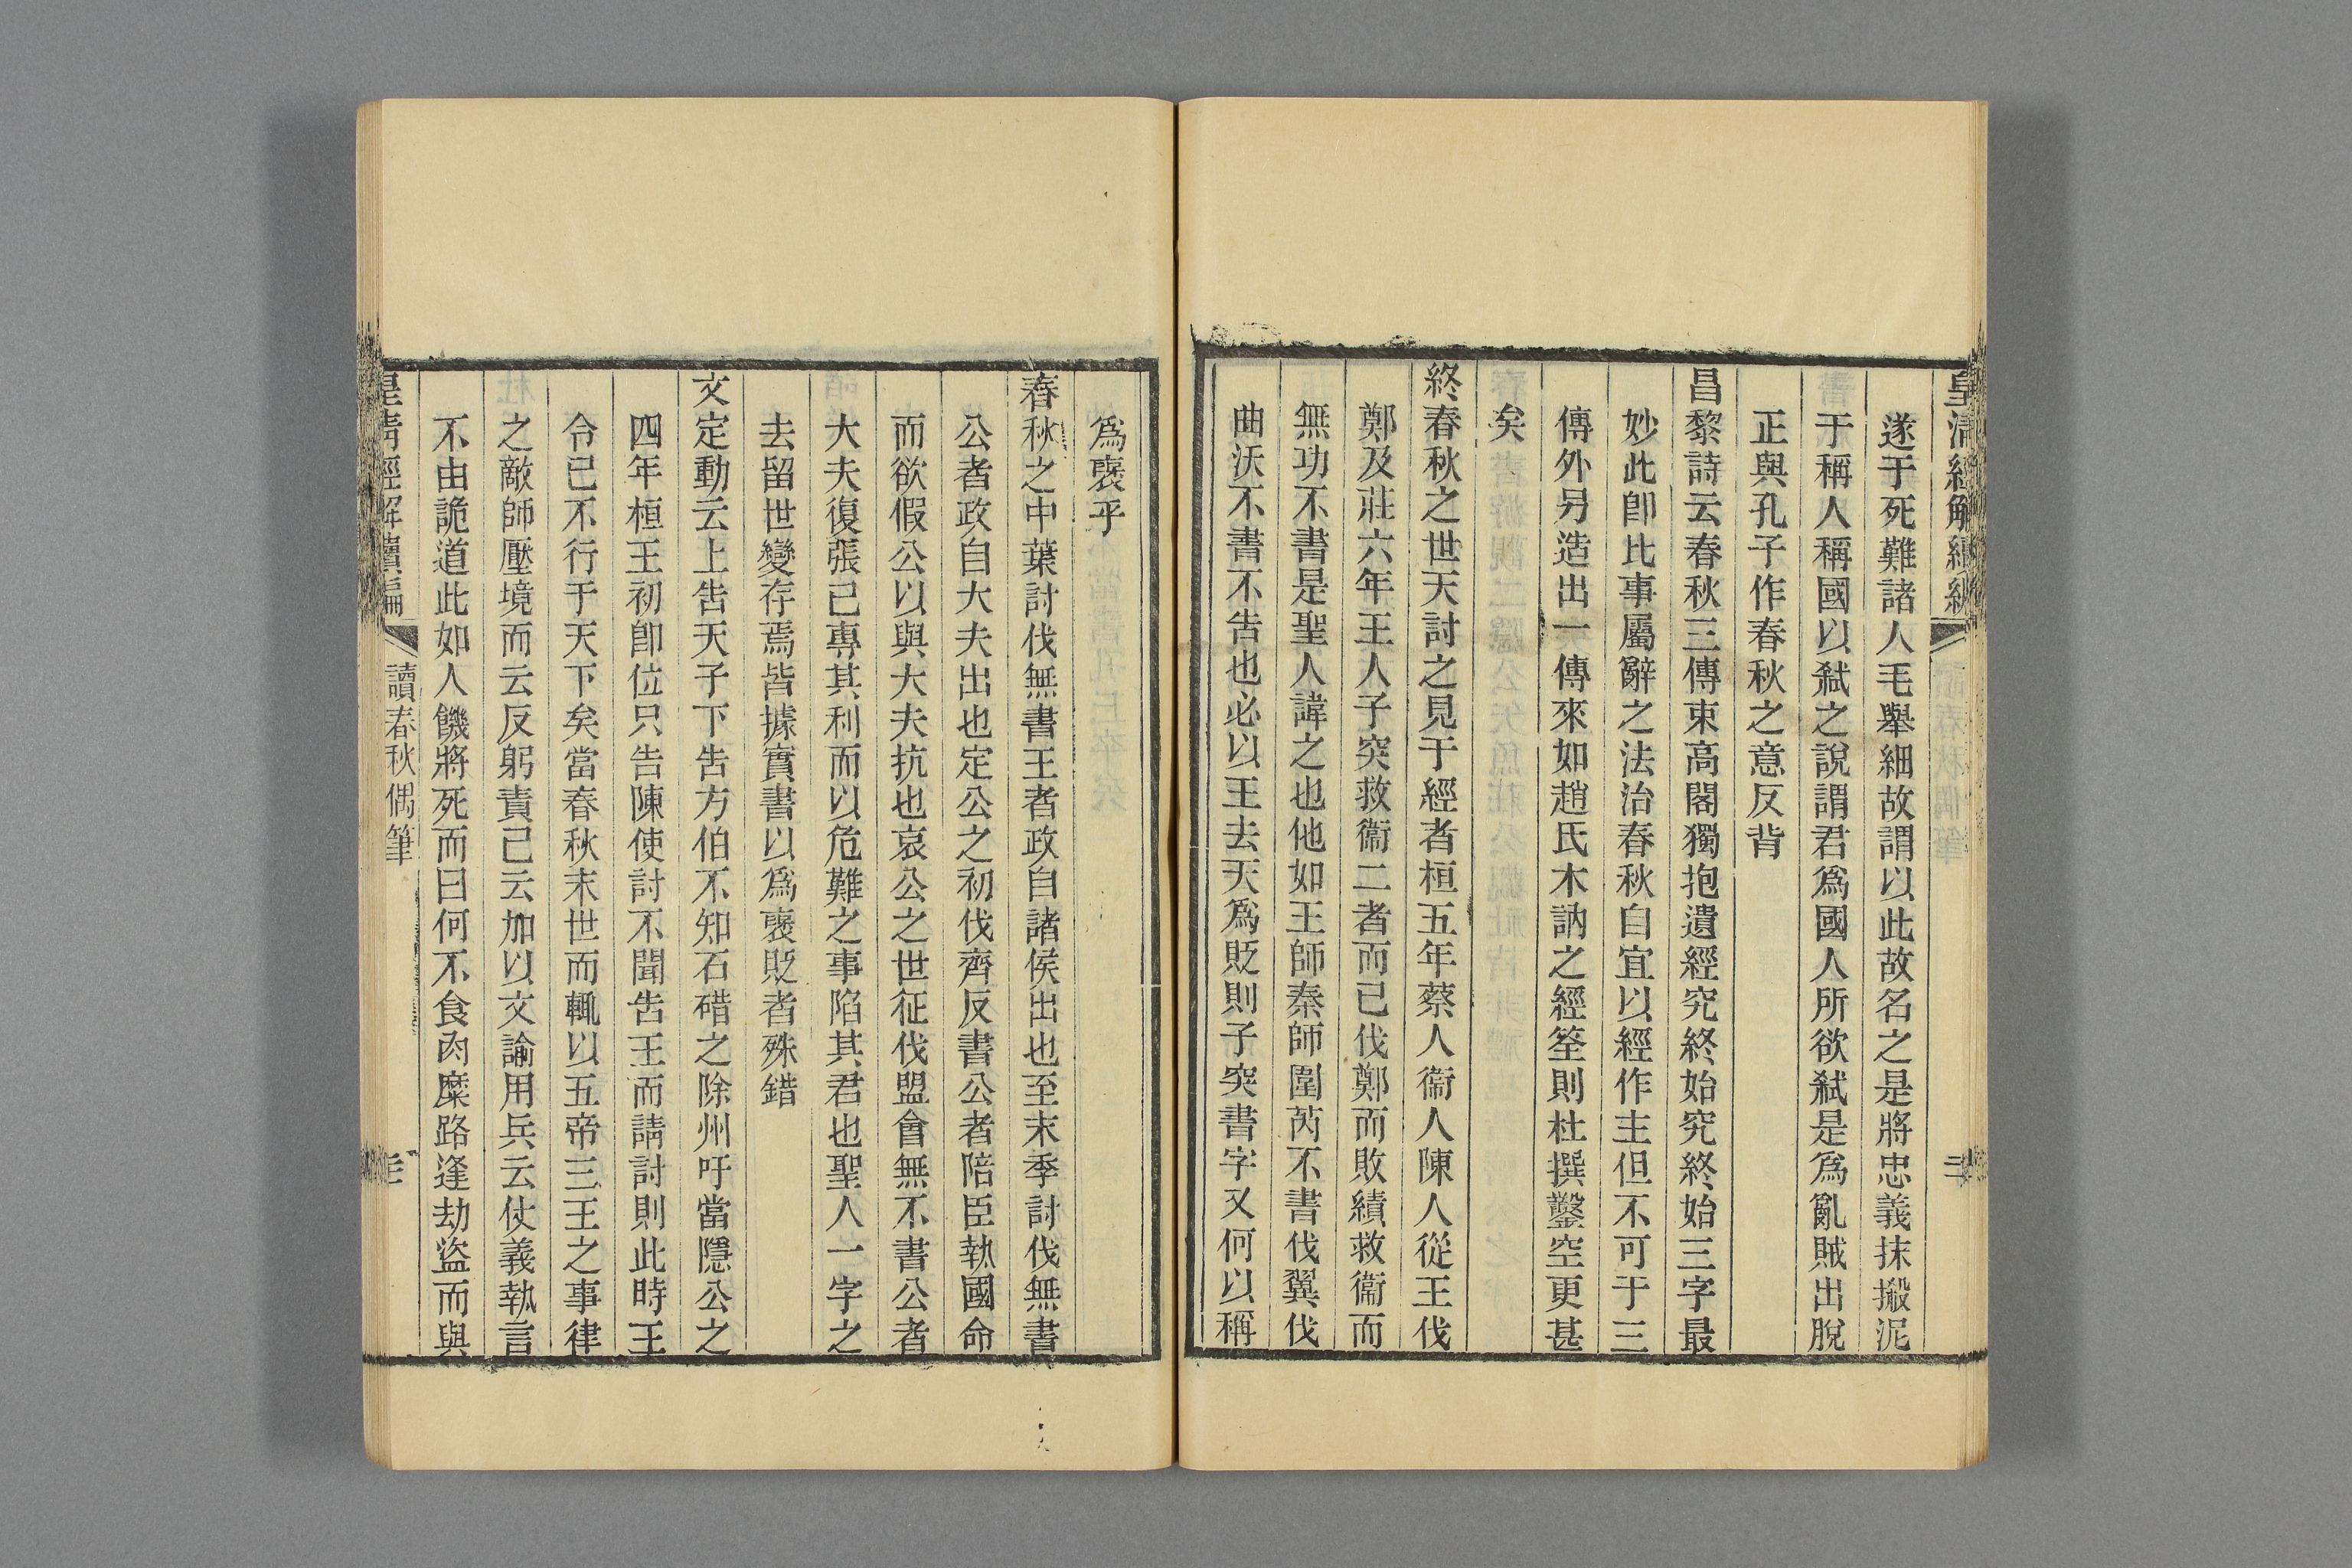 皇清經解續編
二
遂于死難諸人毛舉細故謂以此故名之是將忠義抹搬泥
于稱人稱國以弒之說謂君爲國人所欲弒是爲亂賊出脫
正與孔子作春秋之意反背
昌黎詩云春秋三傳束高閣獨抱遺經究終始究終始三字最
妙此卽比事屬辭之法治春秋自宜以經作主但不可于三
傳外另造出一傳來如趙氏木訥之經筌則杜撰鑿空更甚
矣
終春秋之世天討之見于經者桓五年蔡人衞人陳人從王伐
鄭及莊六年王人子突救衞二者而已伐鄭而敗績救衞而
無功不書是聖人諱之也他如王師秦師圍芮不書伐翼伐
曲沃不書不告也必以王去天爲貶則子突書字又何以稱
爲襃乎
春秋之中葉討伐無書王者政自諸侯出也至末季討伐無書
公者政自大夫出也定公之初伐齊反書公者陪臣執國命
而欲假公以與大夫抗也哀公之世征伐盟會無不書公者
大夫復張己專其利而以危難之事陷其君也聖人一字之
去留世變存焉皆據實書以爲襃貶者殊錯
文定動云上告天子下告方伯不知石碏之除州吁當隱公之
四年桓王初卽位只告陳使討不聞告王而請討則此時王
令已不行于天下矣當春秋末世而輒以五帝三王之事律
之敵師壓境而云反躬責己云加以文諭用兵云仗義執言
不由詭道此如人饑將死而曰何不食肉糜路逢劫盜而與
皇清經解續編
讀春秋偶筆
三